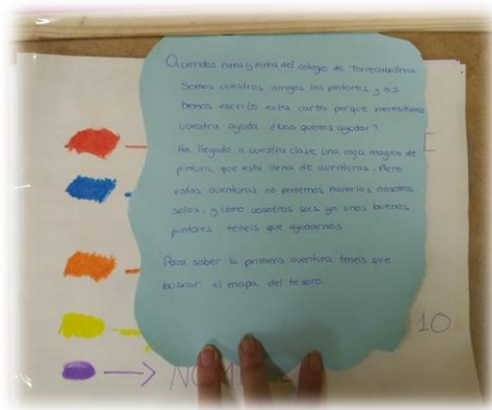 Queridos niños y niñas del colegio de Torrecaballeros
Somos vuestros amigos los pintores y os
hemos escrito esta carta porque necesitamos
vuestra ayuda. ¿Nos quereis ayudar?
Ha llegado a vuestra clase una caja magica de
pintura que está llena de aventuras. Pero
estas aventuras no podemos hacerlas nosotros
solos, y como vosotros sois ya unos buenos
pintores, teneis que ayudarnos.
Para saber la primera aventura teneis que
buscar el mapa del tesoro.
10